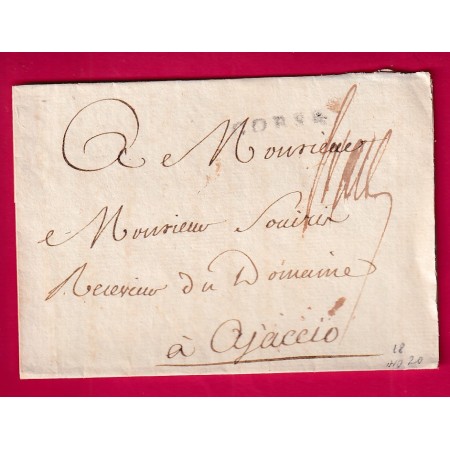 CORSE
A Monsieur
Monsieur Souiris
Receveur du Domaine
à Ajaccio
L8
20